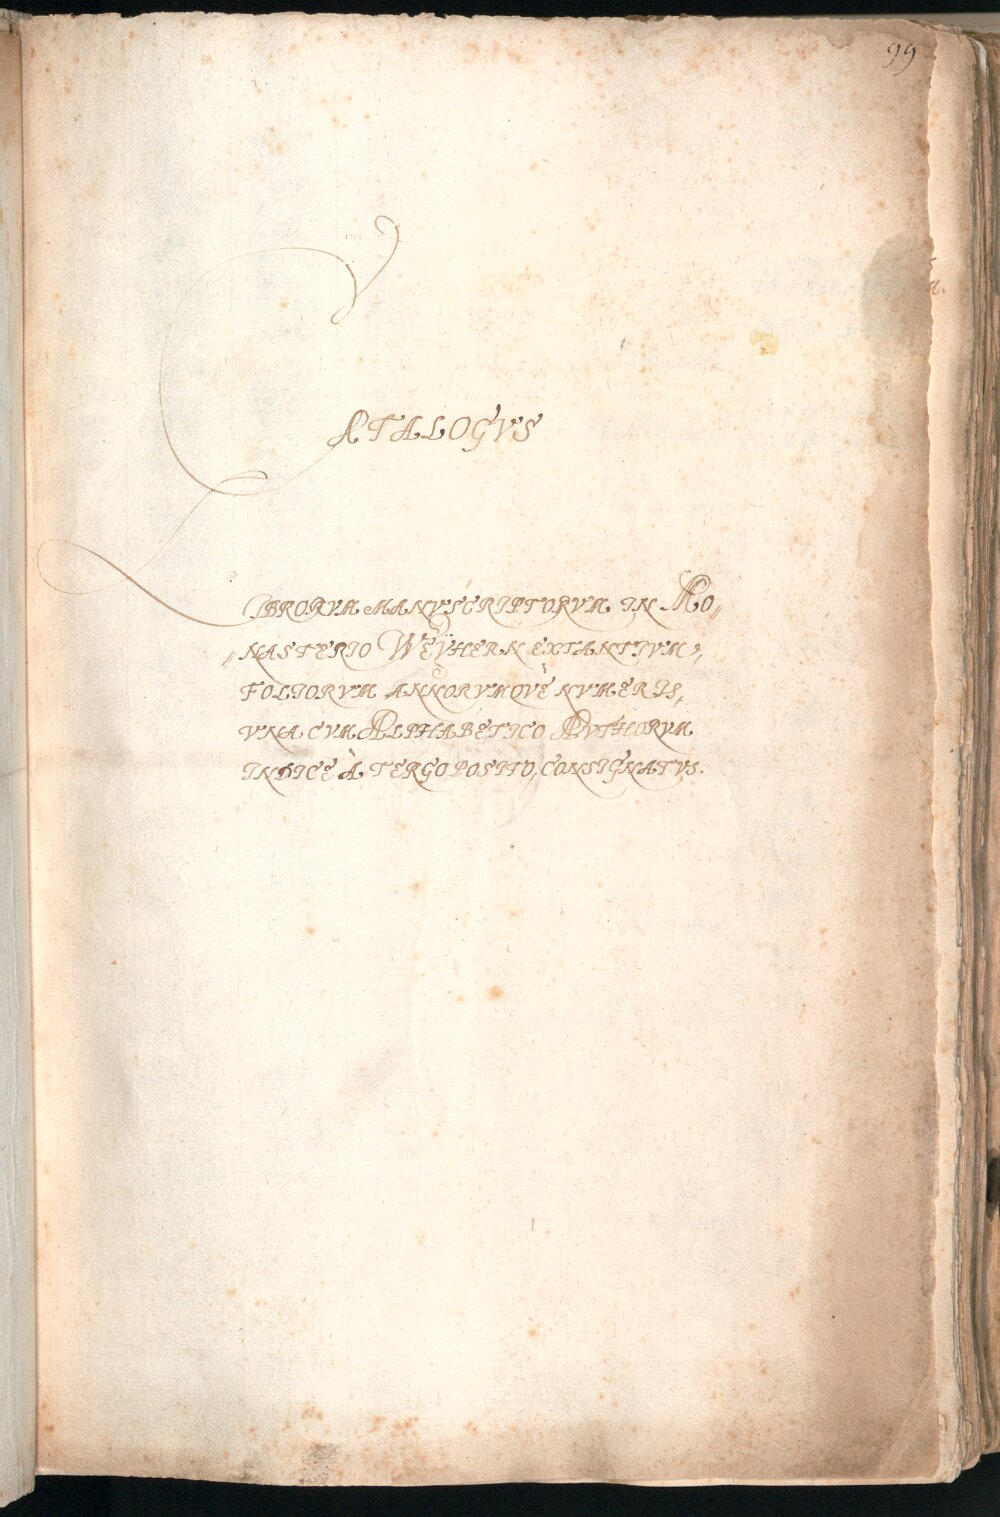 99
CATALOGVS
LIBRORVM MANVSCRIPTORVM IN MO„
„NASTERIO WEŸHERN EXTANTIVM,
FOLIORVM ANNORVMQVÈ NVMERIS,
VNA CVM ALPHABETICO AVTHORVM
INDICE À TERGO POSITO, CONSIGNATVS.